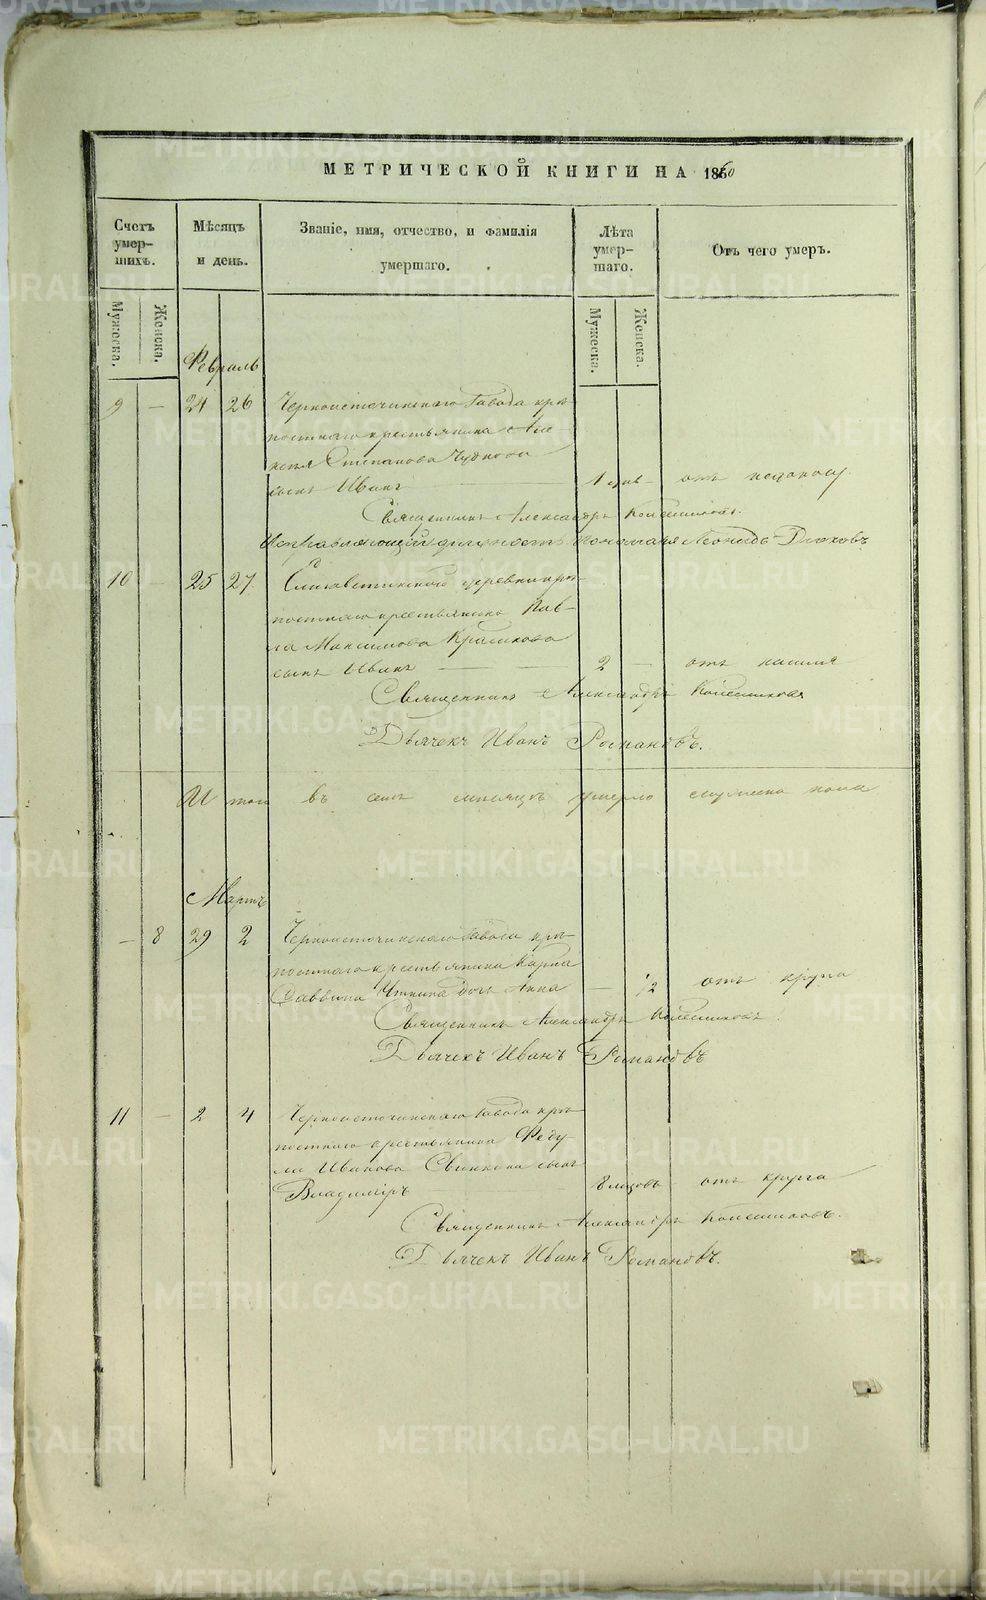 МЕТРИЧЕСКОЙ КНИГИ НА 1860
Счетъ умер-шихъ.
Мѣсяцъ и день.
Званіе, имя, отчество, и фамилія умершаго.
Лѣта умер-шаго.
Отъ чего умеръ.
Мужеска.
Женска.
Мужеска.
Женска.
Февраль
9 — 24 26 Черноисточинскаго Завода крѣ-
постнаго крестьянина Але-
ксѣя Степанова
сынъ Иванъ 1 отъ
Священникъ Александръ Колесниковъ.
Исправляющій должность Пономаря Леонидъ
10 — 25 27 Елизаветинской деревни крѣ-
постнаго крестьянина Пав-
ла Максимова Красикова
сынъ Иванъ — — 2 — отъ кашля
Священникъ Александръ Колесниковъ
Дьячекъ Иванъ Романовъ.
Итого въ семъ мѣсяцѣ умерло мужеска пола
Мартъ
— 8 29 2 Черноисточинскаго Завода крѣ-
постнаго крестьянина Карпа
Саввина дочь Анна — 1/2 отъ круга
Священникъ Александръ Колесниковъ.
Дьячекъ Иванъ Романовъ
11 — 2 4 Черноисточинскаго Завода крѣ-
постнаго крестьянина Феду-
ла Иванова сынъ
Владиміръ 8 мѣсяцовъ отъ круга
Священникъ Александръ Колесниковъ.
Дьячекъ Иванъ Романовъ.
METRIKI.GASO-URAL.RU